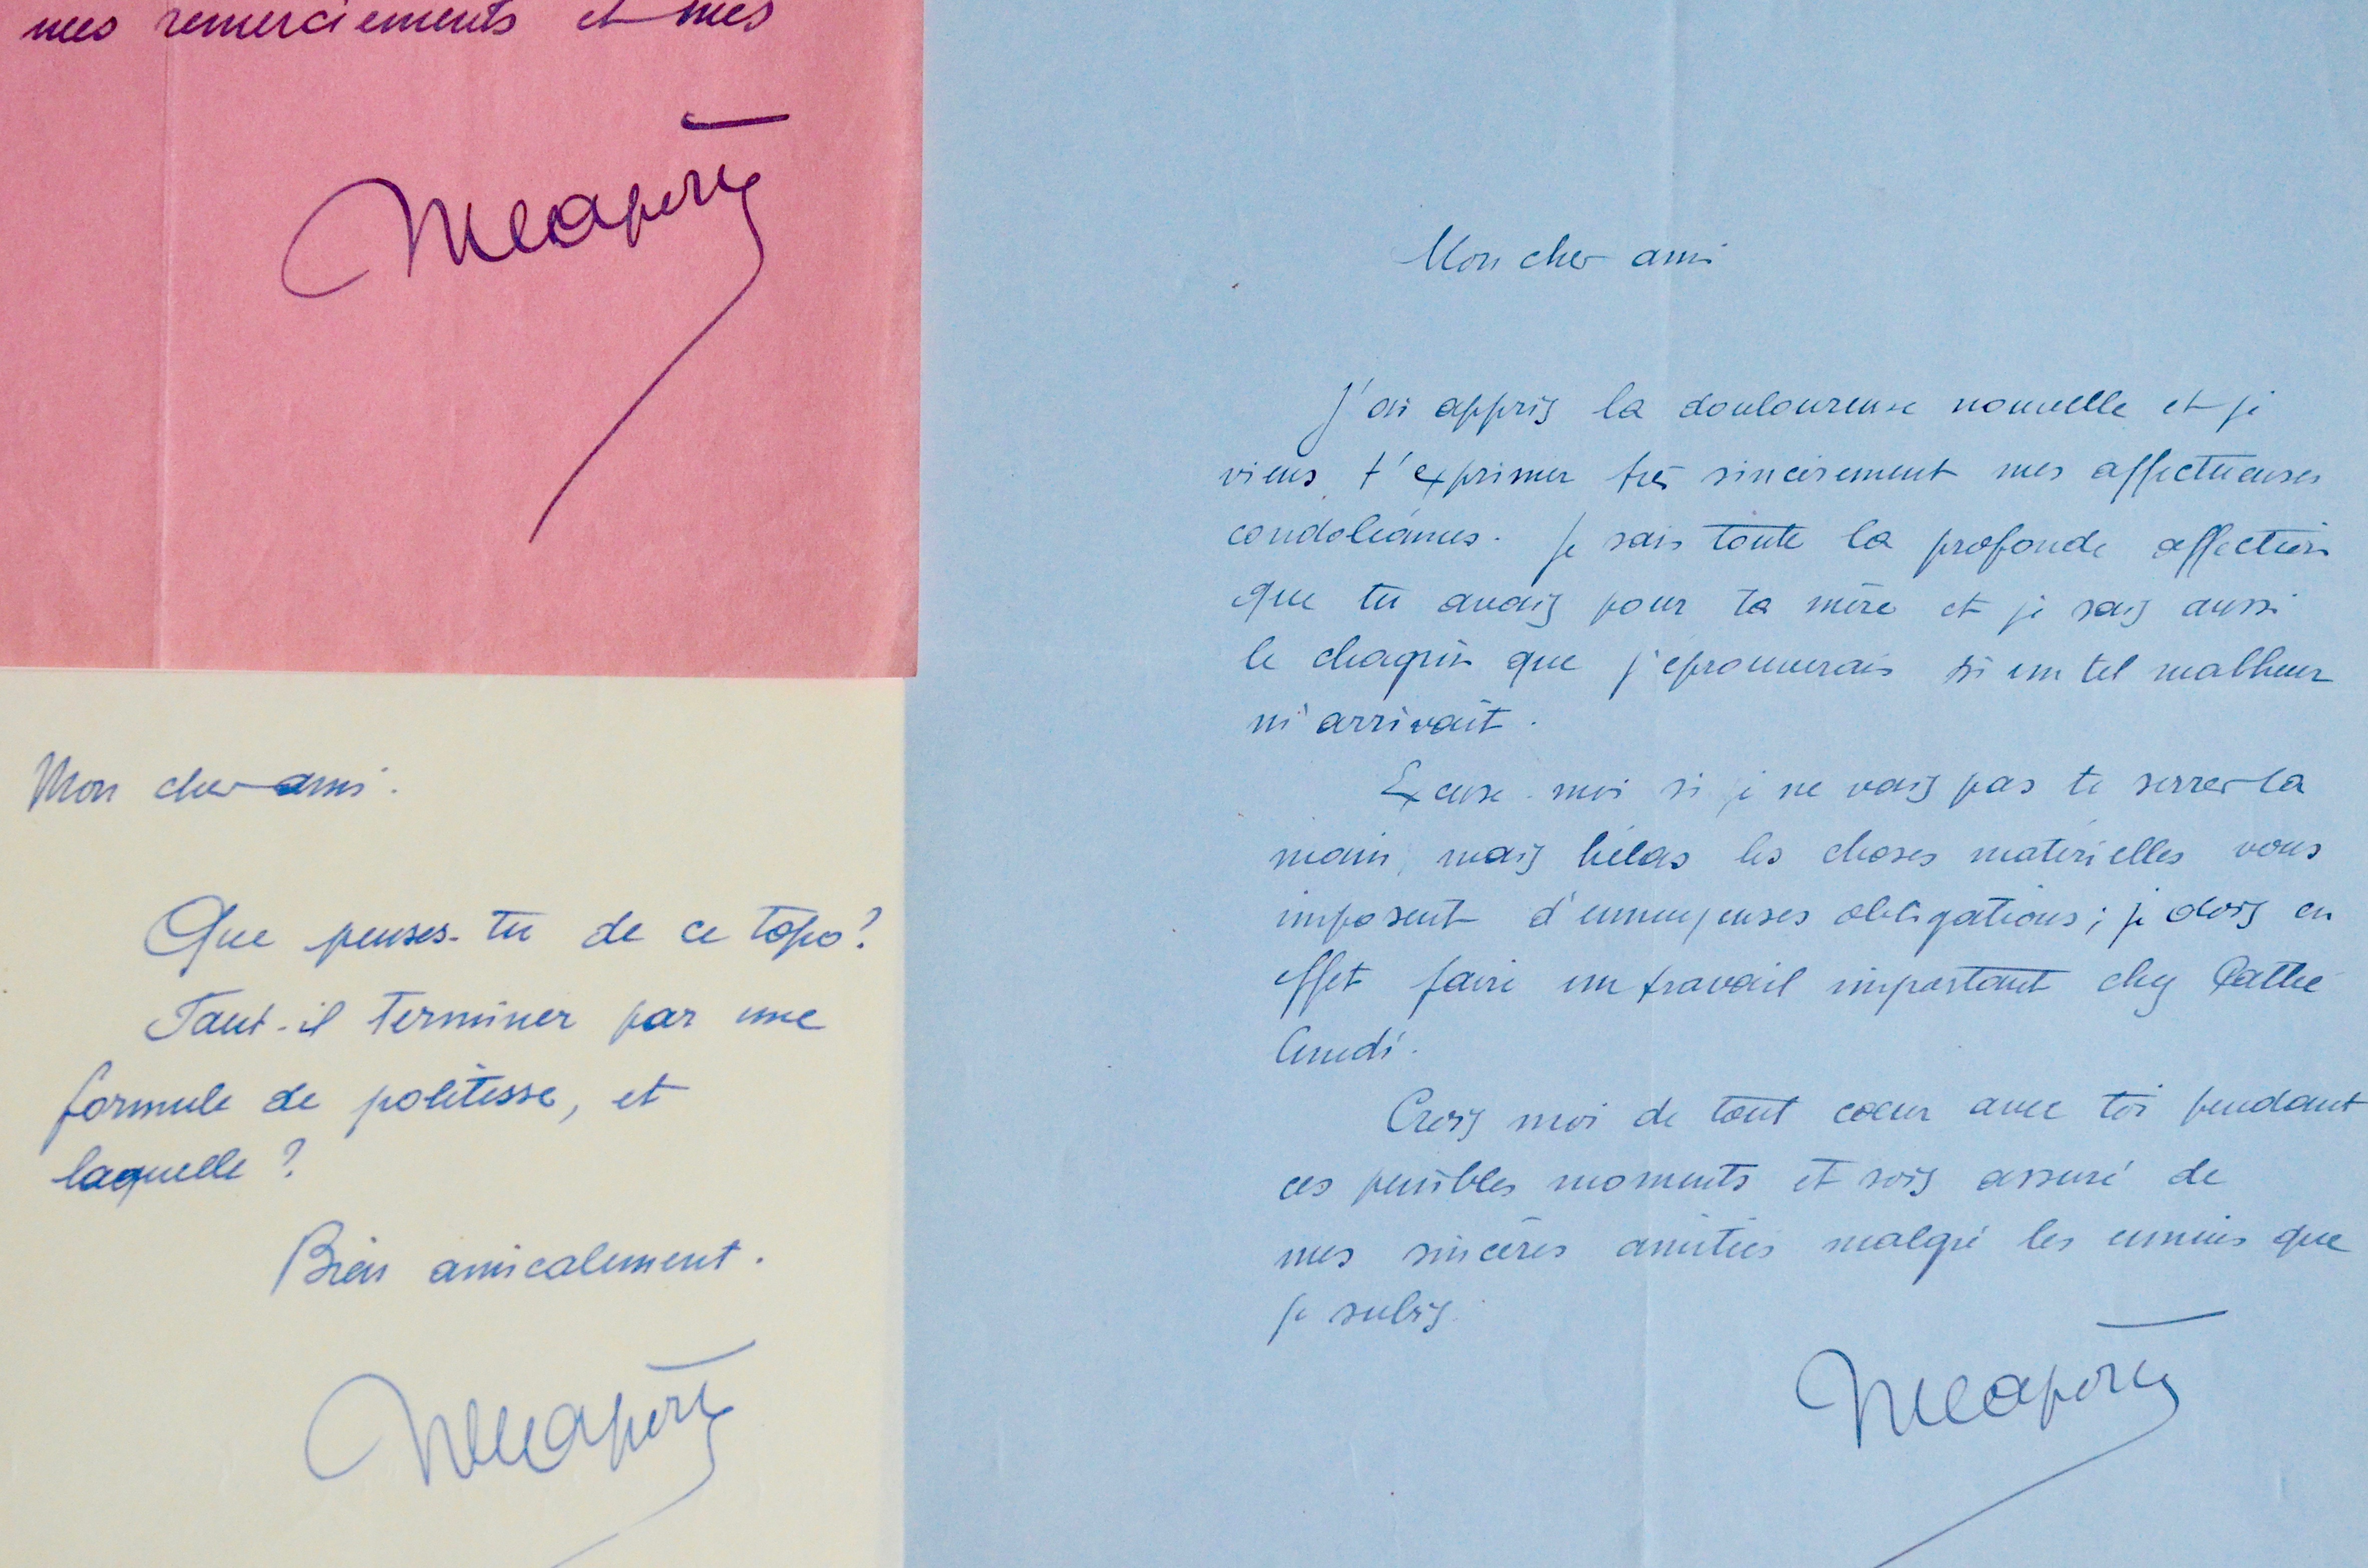 mes remerciements et mes
Mon cher ami.
Que penses-tu de ce topo?
Faut-il terminer par une
formule de politesse, et
laquelle?
Bien amicalement.
Mon cher ami
J'ai appris la douloureuse nouvelle et je
viens t'exprimer très sincèrement mes affectueuses
condoléances. Je sais toute la profonde affection
que tu avais pour ta mère et je sais aussi
le chagrin que j'éprouverais si un tel malheur
m'arrivait.
Excuse-moi si je ne vais pas te serrer la
main, mais hélas les choses matérielles vous
imposent d'ennuyeuses obligations; je dois en
effet faire un travail important chez Pathé
lundi.
Crois moi de tout coeur avec toi pendant
ces pénibles moments et sois assuré de
mes sincères amitiés malgré les ennuis que
je subis.